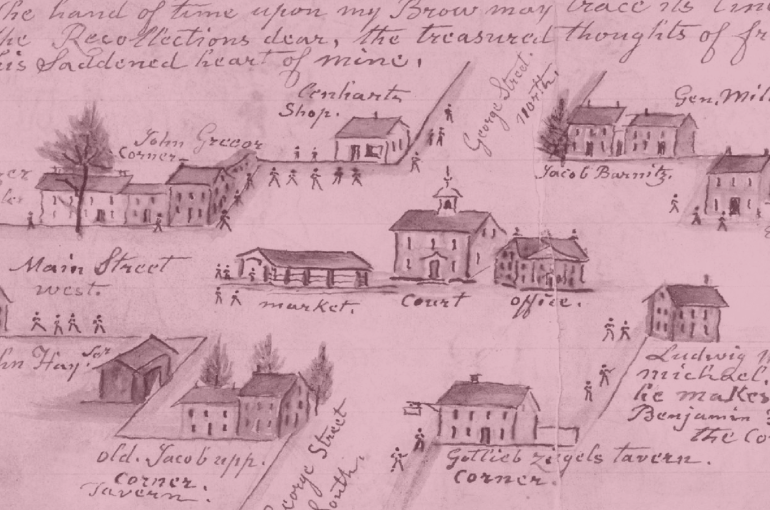 The hand of time upon my Brow may trace its
the Recollections dear, the treasured thoughts of
his saddened heart of mine.
George Street.
North.
Shop.
Gen.
John Greeor
Corner
Jacob Barnitz.
Main Street
West.
market. Court office.
Hay. Sor
Ludwig
michael.
he makes
Benjamin
the
Old. Jacob upp.
Corner.
Tavern.
George Street
South.
Gotlieb Ziegels tavern.
Corner.